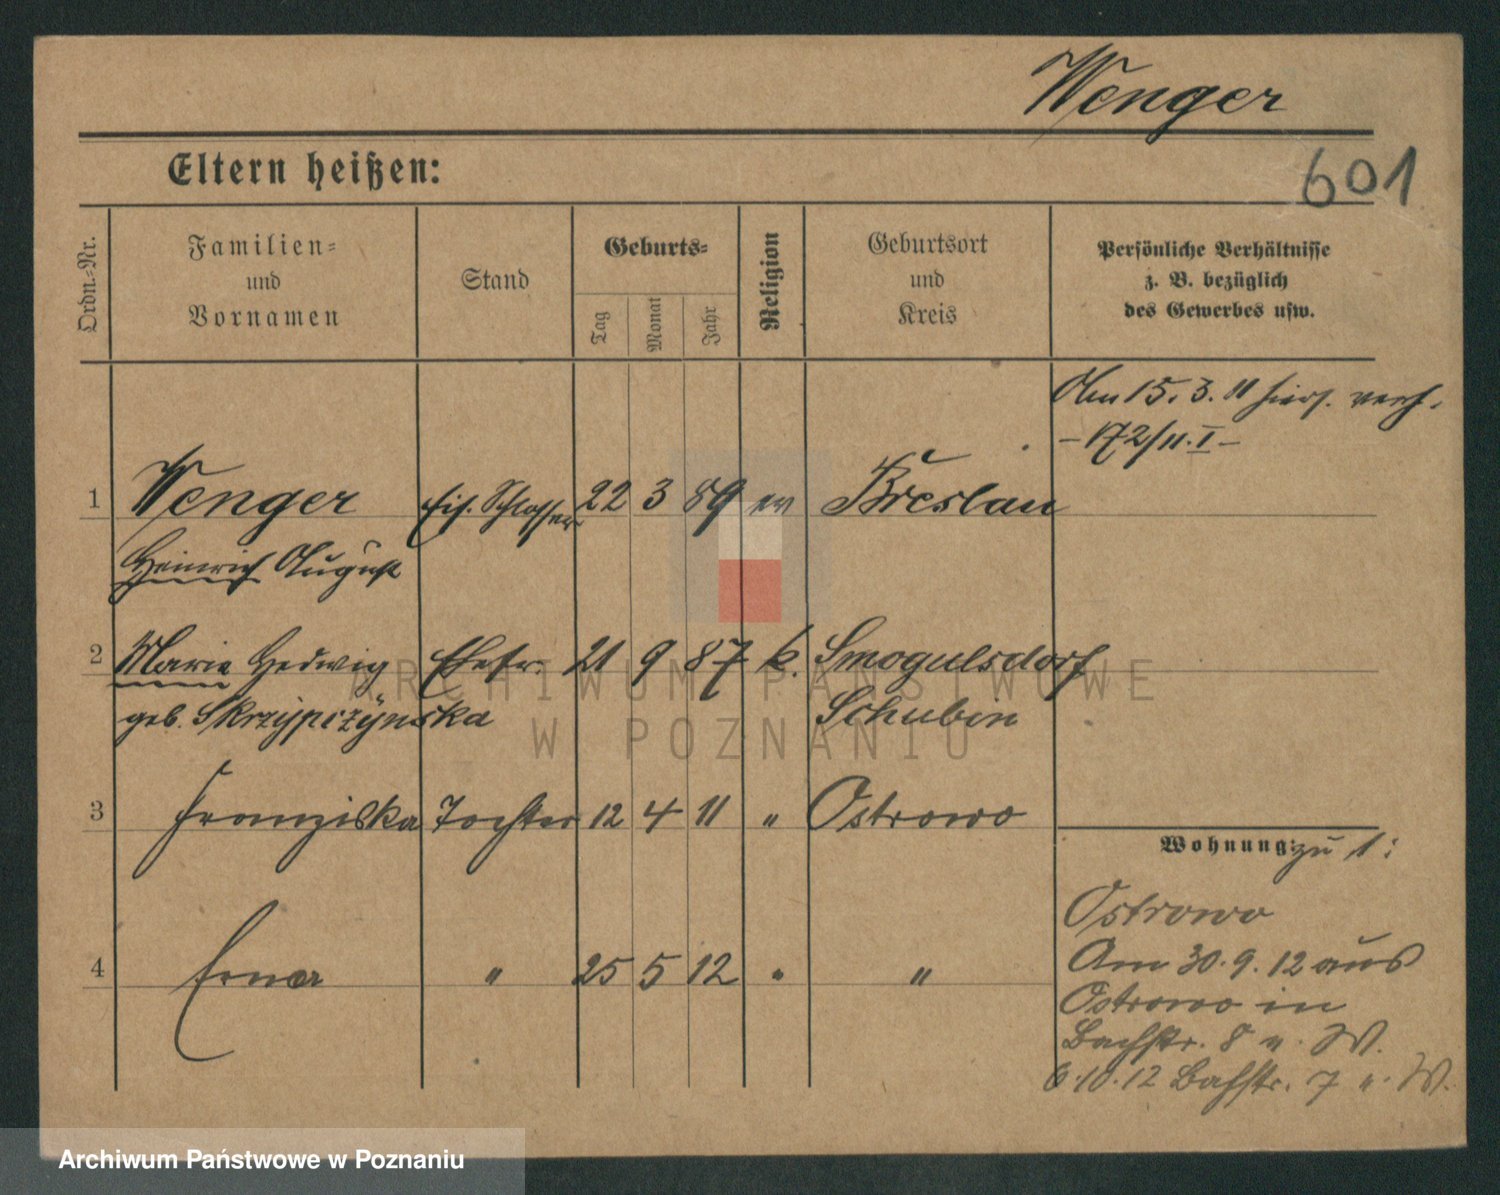 Wenger
601
Eltern heißen:
Ordn.-Nr.
Familien-
und
Vornamen
Stand
Geburts-
Tag
Monat
Jahr
Religion
Geburtsort
und
Kreis
Persönliche Verhältnisse
z. B. bezüglich
des Gewerbes usw.
Am 15. 3. 11 hiers. verh.
- 172/11. I -
1 Wenger Eis. Schlosser 22 3 89 ev Breslau
Heinrich August
2 Marie Hedwig Ehefr. 21 9 87 k. Smogulsdorf
geb. Skrzypczynska Schubin
3 Franziska Tochter 12 4 11 " Ostrowo
Wohnung: zu 1:
Ostrowo
4 Erna " 25 5 12 " "
Am 30. 9. 12 aus
Ostrowo in
Bachstr. 8 u. W.
6. 10. 12 Bachstr. 7 u. W.
ARCHIWUM PAŃSTWOWE
W POZNANIU
Archiwum Państwowe w Poznaniu